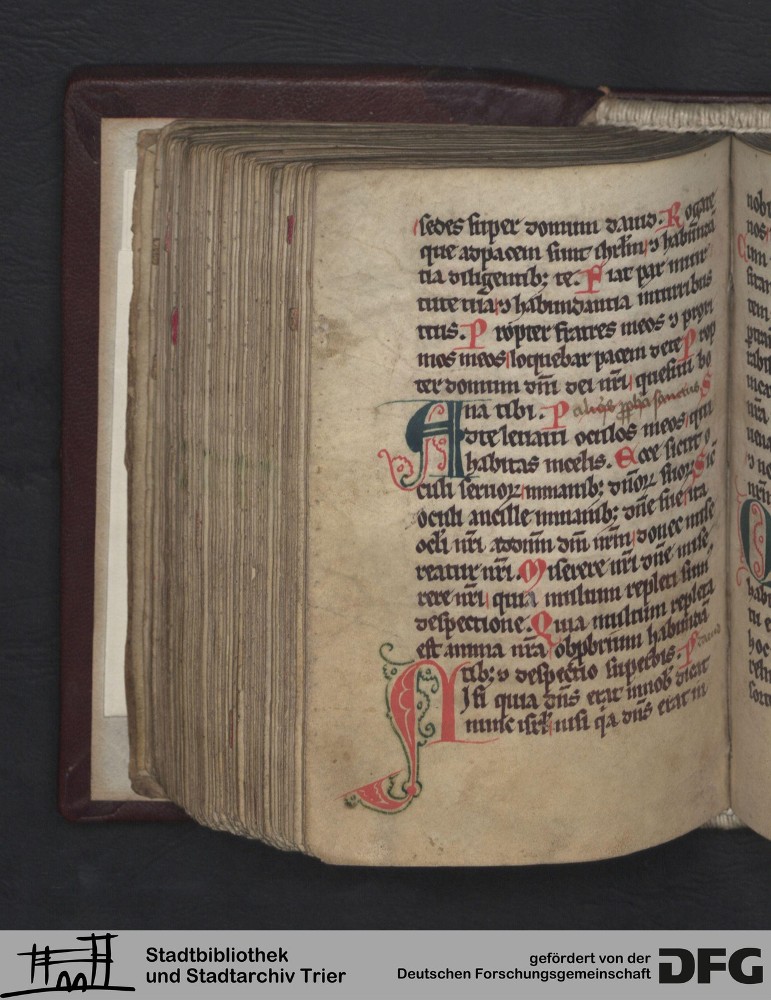 sedes super domum dauid. Rogate
que ad pacem sunt ihrlm ⁊ habundā
tia diligentib; te. Fiat pax in uir
tute tua ⁊ habundantia in turribus
tuis. Propter fratres meos ⁊ proxi
mos meos loquebar pacem de te Prop
ter domum dn̄i dei nr̄i quesiui bo
na tibi. P sanctus S
Ad te leuaui oculos meos qui
habitas in celis. Ecce sicut o
culi seruoꝝ in manib; dn̄oꝝ suoꝝ Sic
oculi ancille in manib; dn̄e sue ita
ocl̄i nr̄i ad dn̄m dm̄ nr̄m donec mise
reatur nr̄i. Miserere nr̄i dn̄e mise
rere nr̄i quia multum repleti sum
despectione. Quia multum repleta
est anima nr̄a obprium habundā
tib; ⁊ despectio superbis. P
Nisi quia dn̄s erat in nob̄ dicat
nunc isrl̄ nisi q̄a dn̄s erat in
nobi
nos
Cum
Stadtbibliothek
und Stadtarchiv Trier
gefördert von der
Deutschen Forschungsgemeinschaft
DFG